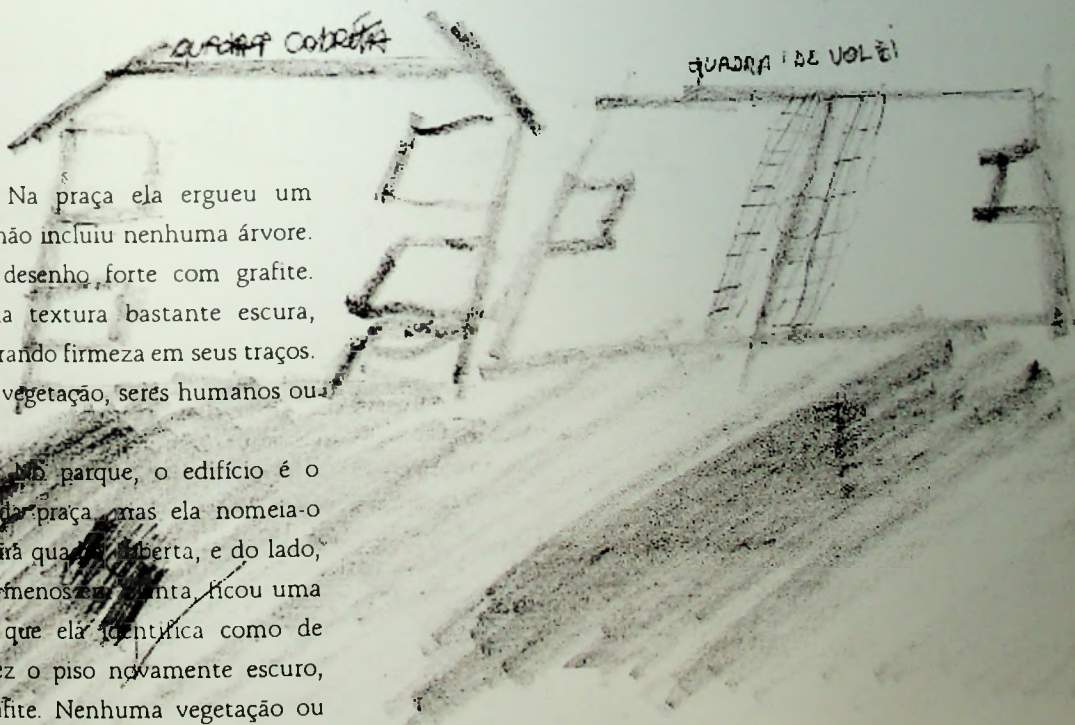 QUADRA COBRETA
QUADRA DE VOLEI
Na praça ela ergueu um
não incluiu nenhuma árvore.
desenho forte com grafite.
a textura bastante escura,
rando firmeza em seus traços.
vegetação, seres humanos ou
No parque, o edifício é o
da praça, mas ela nomeia-o
irá quadra aberta, e do lado,
menos em planta, ficou uma
que ela identifica como de
ez o piso novamente escuro,
afite. Nenhuma vegetação ou